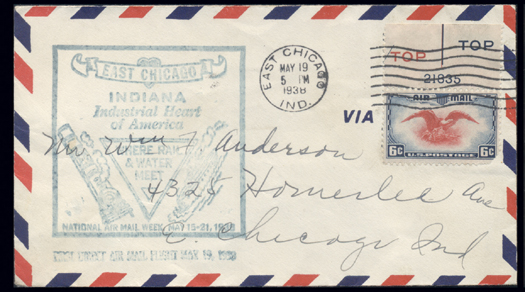 EAST CHICAGO
INDIANA
Industrial Heart
of America
WHERE RAIL
& WATER
MEET
NATIONAL AIR MAIL WEEK MAY 15-21, 1938
FIRST DIRECT AIR MAIL FLIGHT MAY 19, 1938
EAST CHICAGO
MAY 19
5 PM
1938
IND.
TOP
TOP
21835
VIA
AIR MAIL
6c 6c
U.S. POSTAGE
Mr. Wm F. Anderson
4325 Homerlee Ave
E. Chicago Ind